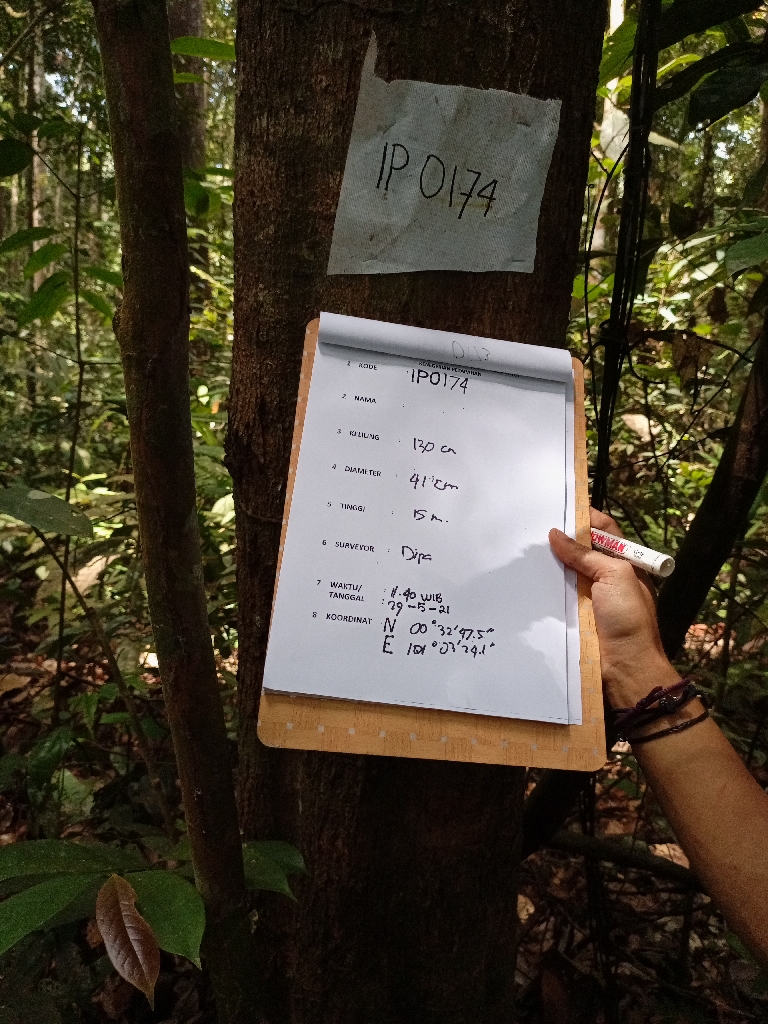 IP 0174
1 KODE : IP0174
2 NAMA :
3 KELILING : 130 cm
4 DIAMETER : 41 cm
5 TINGGI : 15 m.
6 SURVEYOR : Dipa
7 WAKTU/ : 11.40 WIB
TANGGAL : 29-5-21
8 KOORDINAT : N 00°32'47.5"
E 101°03'24.1"
SNOWMAN